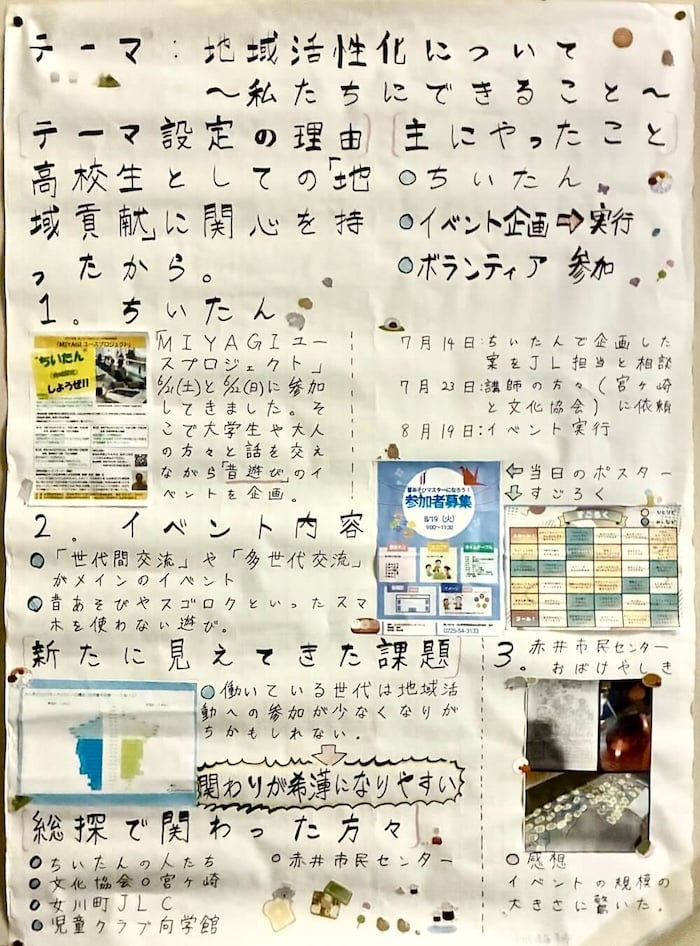 テーマ：地域活性化について
～私たちにできること～
テーマ設定の理由
高校生としての「地
域貢献」に関心を持
ったから。
主にやったこと
ちいたん
イベント企画⇨実行
ボランティア 参加
1。ちいたん
「MIYAGIユースプロジェクト」
"ちいたん"
しようぜ!!
「MIYAGIユー
スプロジェクト」
6/21(土)と6/22(日)に参加
してきました。そ
こで大学生や大人
の方々と話を交え
ながら「昔遊び」のイ
ベントを企画。
7月14日:ちいたんで企画した
案をJL担当と相談
7月23日:講師の方々(宮ヶ崎
と文化協会)に依頼
8月19日:イベント実行
←当日のポスター
⇩すごろく
昔あそびマスターになろう！
参加者募集
8/19（火）
9:00～11:30
0225-54-3133
すごろく
2。イベント内容
「世代間交流」や「多世代交流」
がメインのイベント
昔あそびやスゴロクといったスマ
ホを使わない遊び。
新たに見えてきた課題
働いている世代は地域活
動への参加が少なくなりが
ちかもしれない。
関わりが希薄になりやすい
3。赤井市民センター
おばけやしき
感想
イベントの規模の
大きさに驚いた。
総探で関わった方々
ちいたんの人たち
文化協会○宮ヶ崎
女川町JLC
児童クラブ向学館
赤井市民センター